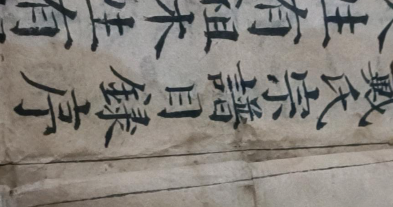 戴氏宗譜目錄序
生有祖木生有